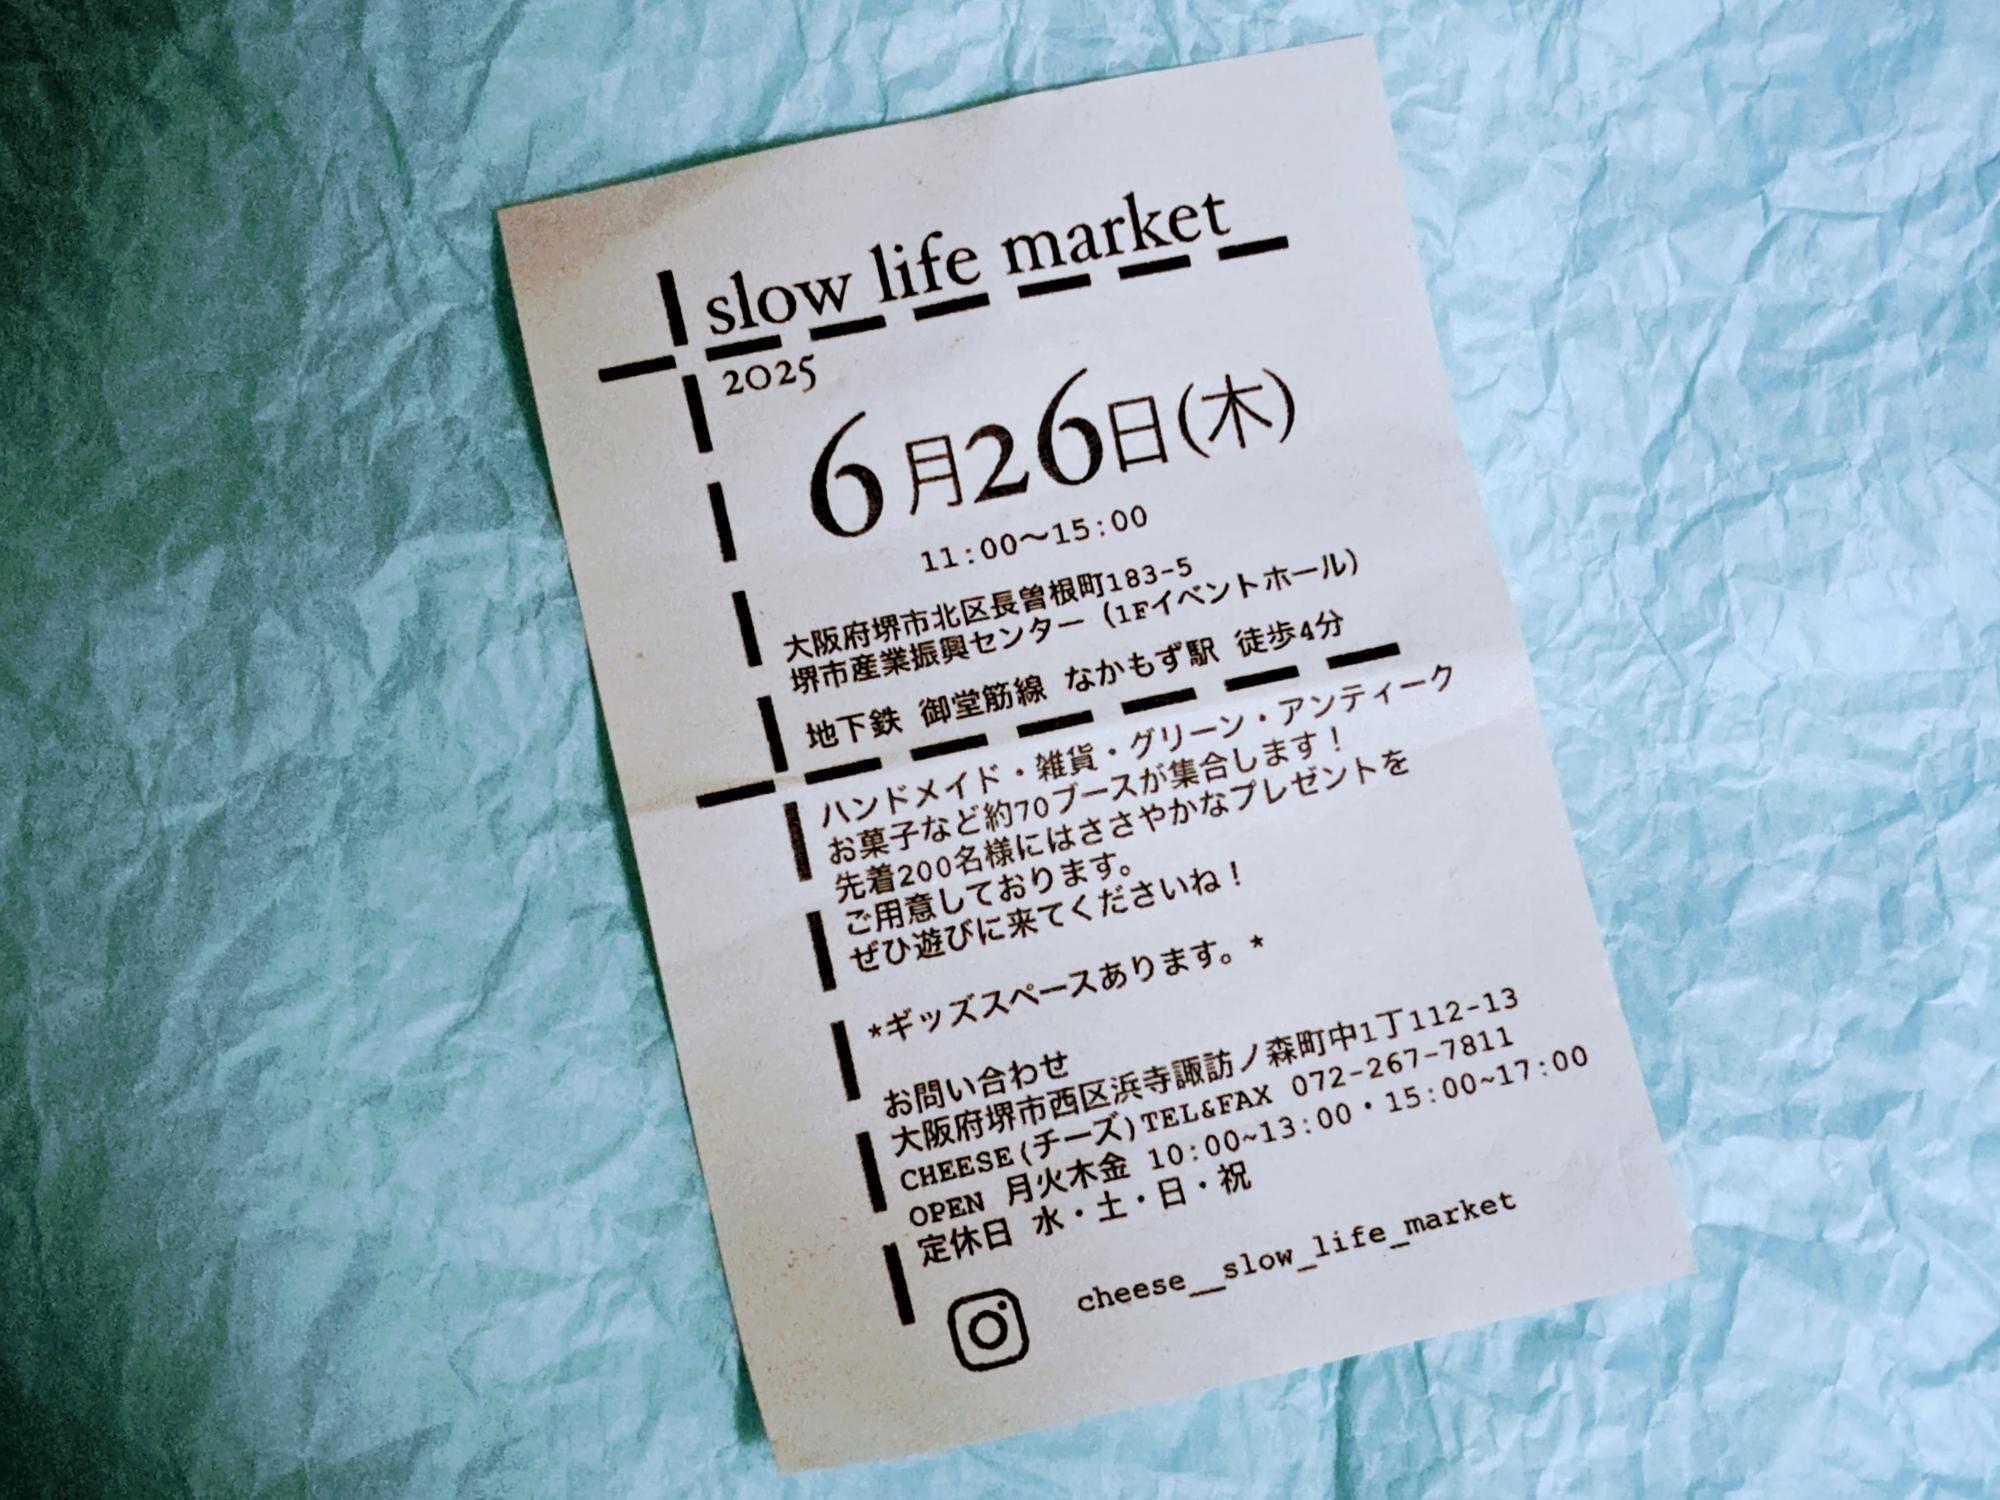 slow life market
2025
6月26日(木)
11:00〜15:00
大阪府堺市北区長曽根町183-5
堺市産業振興センター (1Fイベントホール)
地下鉄 御堂筋線 なかもず駅 徒歩4分
ハンドメイド・雑貨・グリーン・アンティーク
お菓子など約70ブースが集合します！
先着200名様にはささやかなプレゼントを
ご用意しております。
ぜひ遊びに来てくださいね！
*ギッズスペースあります。*
お問い合わせ
大阪府堺市西区浜寺諏訪ノ森町中1丁112-13
CHEESE(チーズ)TEL&FAX 072-267-7811
OPEN 月火木金 10:00~13:00・15:00~17:00
定休日 水・土・日・祝
cheese__slow_life_market